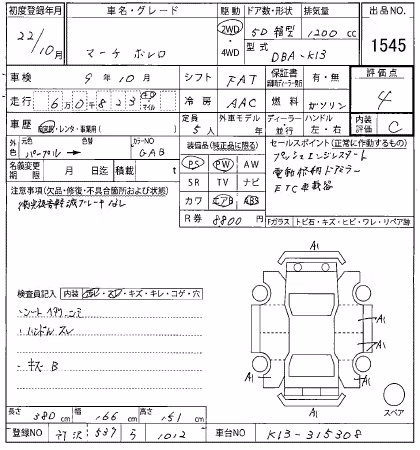 初度登録年月 車名・グレード 駆動 ドア数・形状 排気量 出品NO.
22/10月 マーチ ボレロ 2WD ・4WD 5D 箱型 1200 cc 1545
型式 DBA-K13
車検 9年10月 シフト FAT 保証書 有・無 評価点
走行 6万0千823 キロ マイル 冷房 AAC 燃料 ガソリン 4
車歴 自家用・レンタ・事業用( ) 定員 5人 外車モデル 年 ディーラー・並行 ハンドル 左・右 内装評価 C
外色 元色 パープル 色替 カラーNO GAB
名義変更期限 月 日迄 積載 t
装備品(純正品に限る)
PS PW AW
SR TV ナビ
カワ エアB ABS
R券 8800円
セールスポイント(正常に作動するもの)
プッシュエンジンスタート
電動格納ドアミラー
ETC車載器
注意事項(欠品・修復・不具合箇所および状態)
Fガラス トビ石・キズ・ヒビ・ワレ・リペア跡
検査員記入 内装 汚レ・スレ・キズ・キレ・コゲ・穴
・シート ヘタリ シミ
・ハンドル スレ
・キズ B
A1
A1
A1
A1
A1
A1
A1
スペア
長さ 380cm 幅 166cm 高さ 151cm
登録NO 所沢 537 ら 1012 車台NO K13-315308